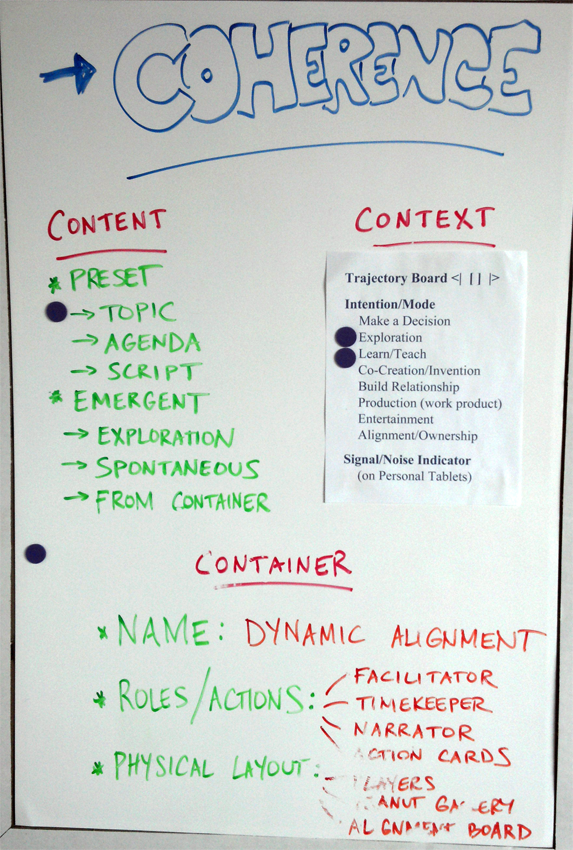 → COHERENCE
CONTENT
* PRESET
→ TOPIC
→ AGENDA
→ SCRIPT
* EMERGENT
→ EXPLORATION
→ SPONTANEOUS
→ FROM CONTAINER
CONTEXT
Trajectory Board <| [ ] |>
Intention/Mode
Make a Decision
Exploration
Learn/Teach
Co-Creation/Invention
Build Relationship
Production (work product)
Entertainment
Alignment/Ownership
Signal/Noise Indicator
(on Personal Tablets)
CONTAINER
* NAME: DYNAMIC ALIGNMENT
* ROLES/ACTIONS:
FACILITATOR
TIMEKEEPER
NARRATOR
ACTION CARDS
* PHYSICAL LAYOUT:
PLAYERS
PEANUT GALLERY
ALIGNMENT BOARD